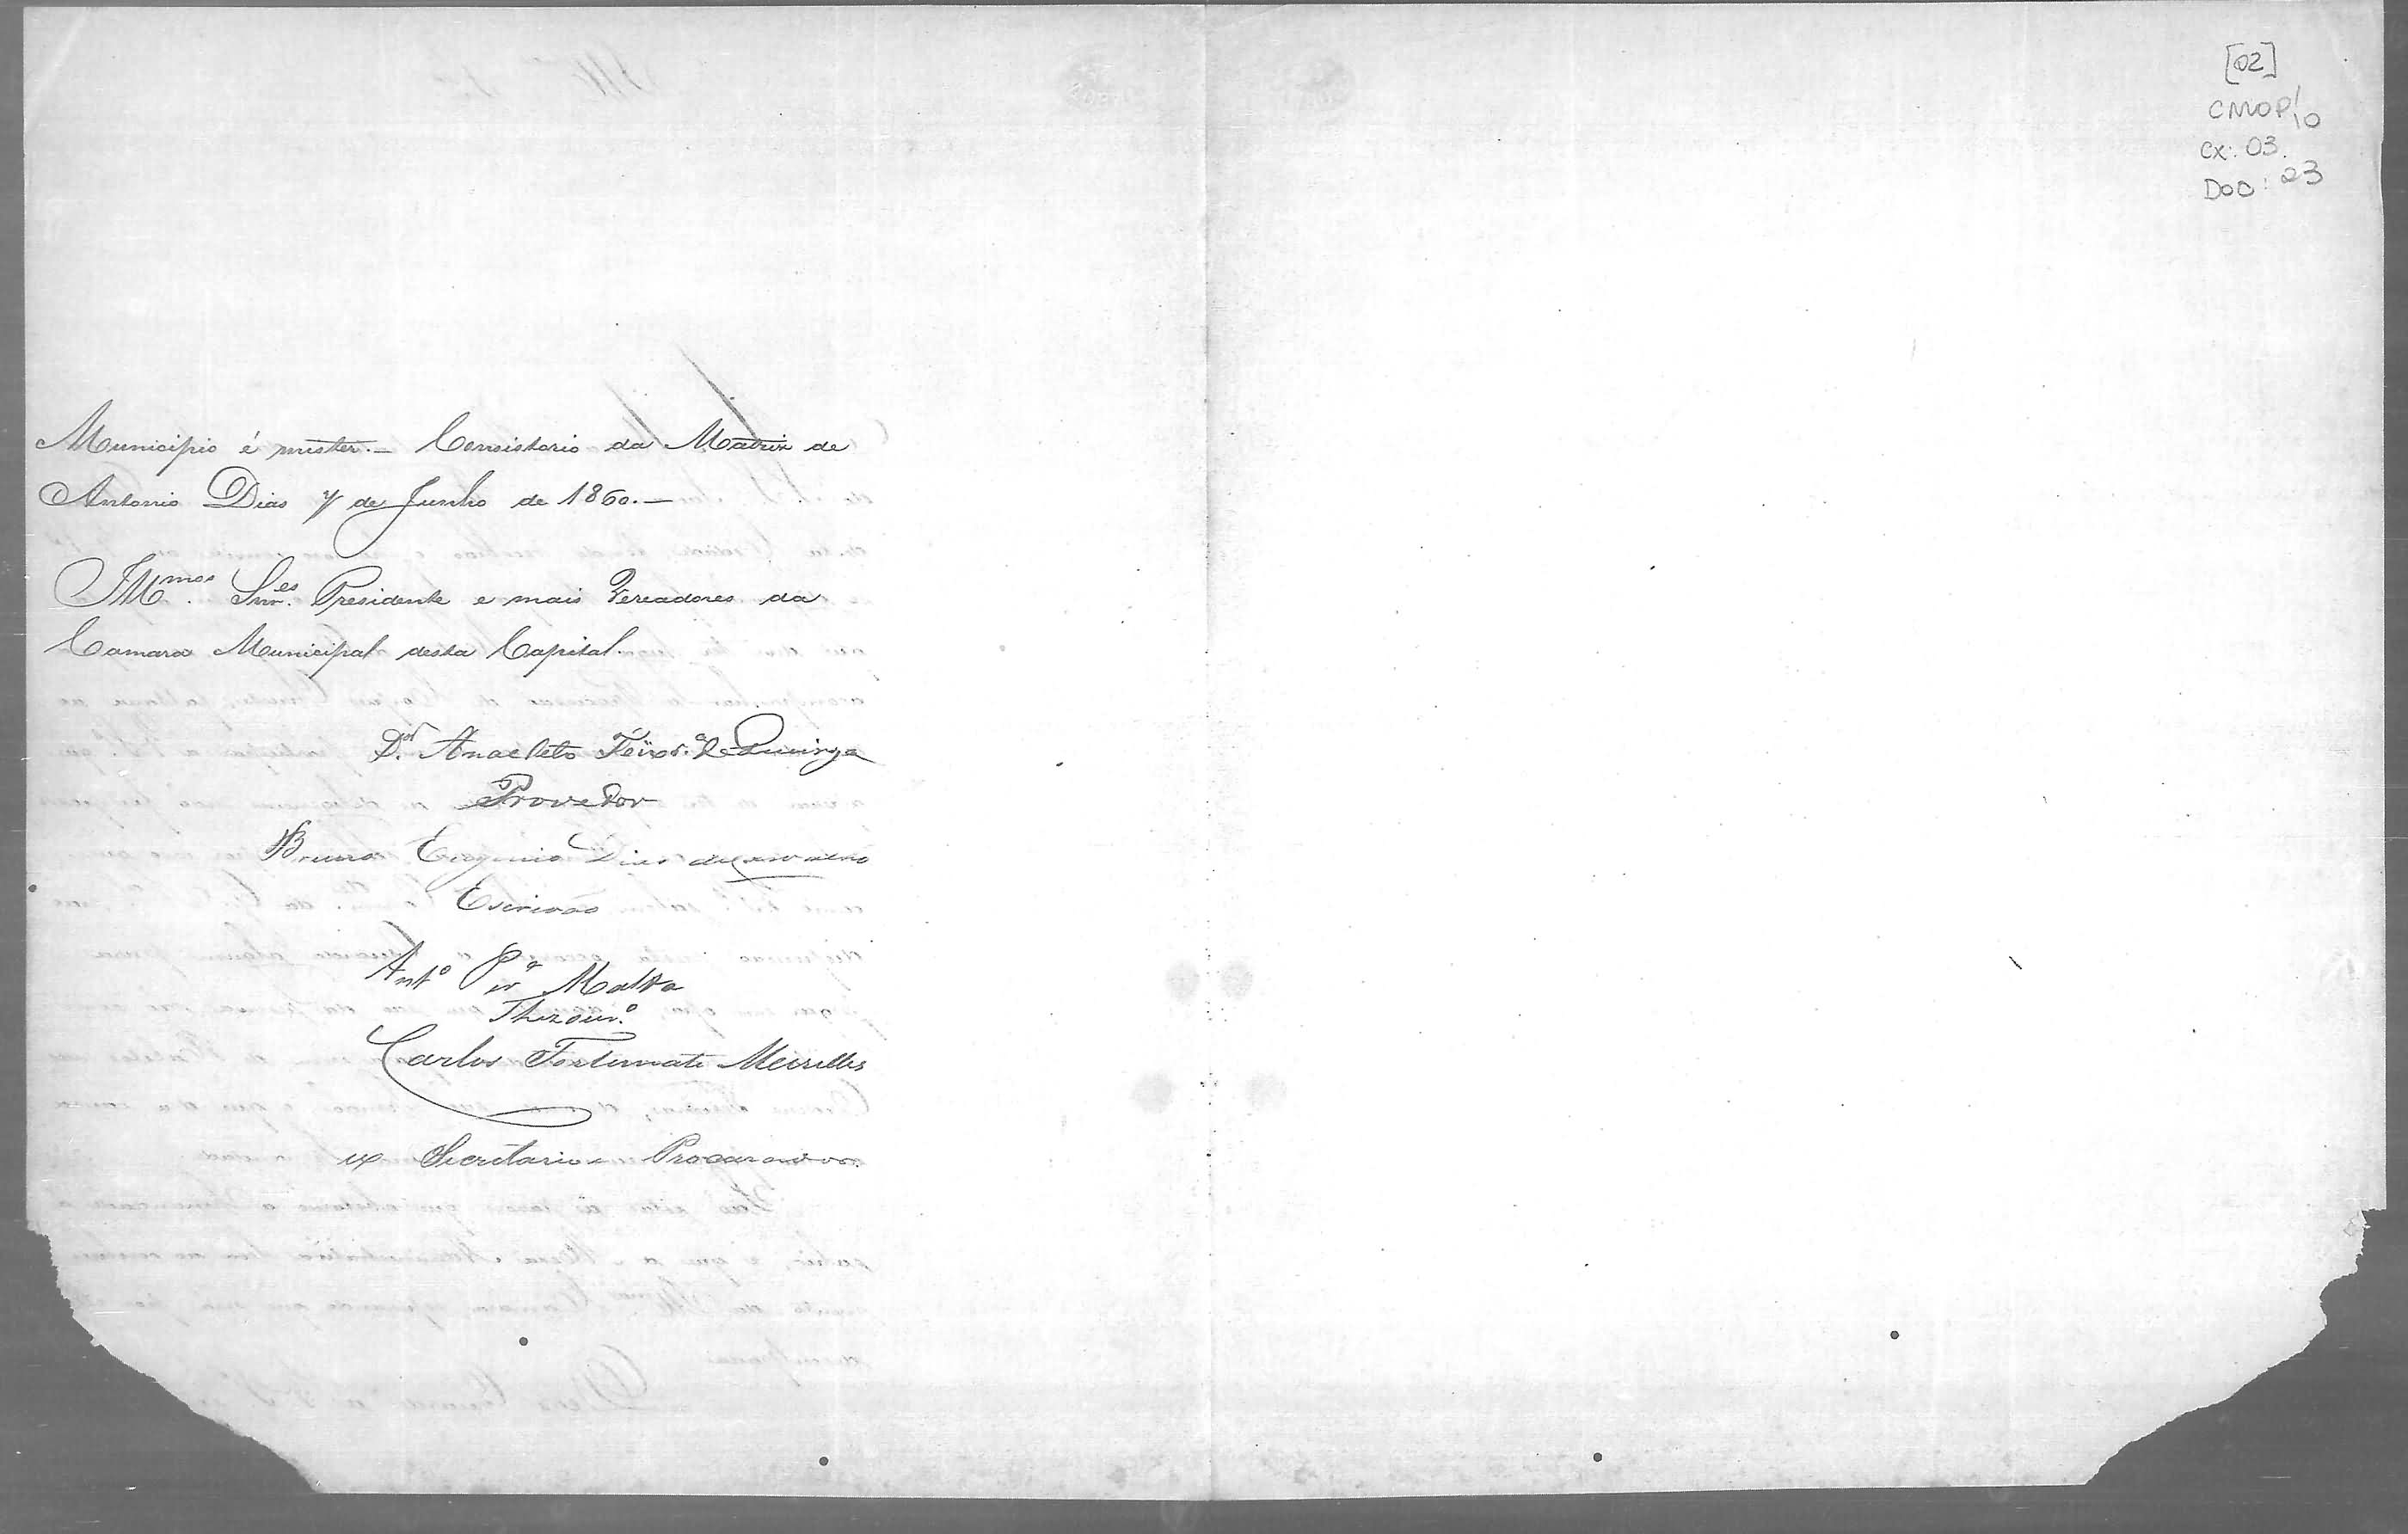 Municipio é mister. — Consistorio da Matriz de
Antonio Dias 7 de Junho de 1860. —
Illmos. Snres. Presidente e mais Vereadores da
Camara Municipal desta Capital.
Dor Anacleto Teixra. de
Provedor
Bruno Eugenio Dias de
Escrivão
Anto Pra Malta
Thezouro.
Carlos Fortunato Meirelles
Secretario e Procurador
[02]
CMOP/
Cx: 03.
DOC: 23